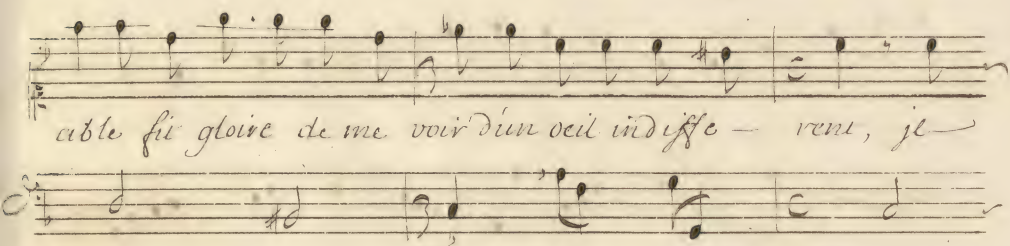 able fit gloire de me voir d'un oeil indiffe - rent, je